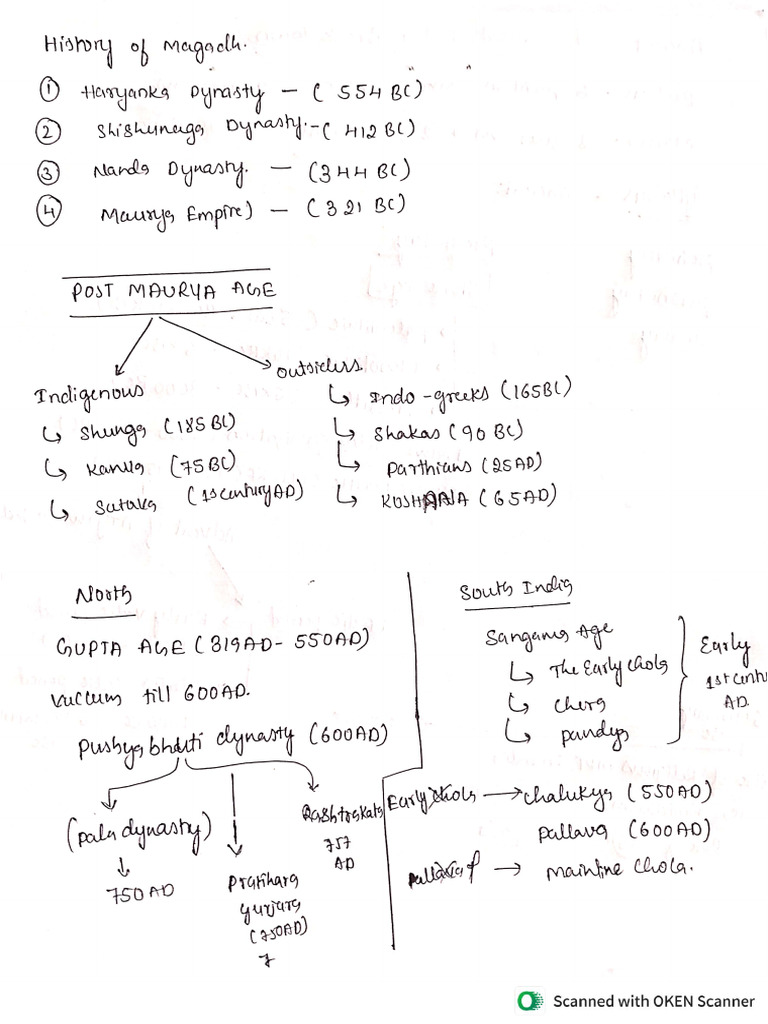 History of Magadh.
① Haryanka Dynasty - ( 554 BC)
② Shishunaga Dynasty.-( 412 BC)
③ Nanda Dynasty. - (344 BC)
④ Maurya Empire) - (321 BC)
POST MAURYA AGE
Indigenous
↳ Shunga (185 BC)
↳ Kanva (75 BC)
↳ Satava (1st century AD)
outsiders.
↳ Indo-greeks (165BC)
↳ Shakas (90 BC)
↳ Parthians (25AD)
↳ KUSHANA (65AD)
North
GUPTA AGE (319AD- 550AD)
Vaccum till 600AD.
Pushyabhuti dynasty (600AD)
(pala dynasty)
↓
750AD
Pratihara
gurjara
(750AD)
7
Rashtrakata
757
AD
South India
Sangama Age
↳ The Early chola
↳ chera
↳ pandya
Early
1st centu
AD.
Early chola → chalukya (550AD)
pallava (600AD)
pallava → Mainline chola.
Scanned with OKEN Scanner